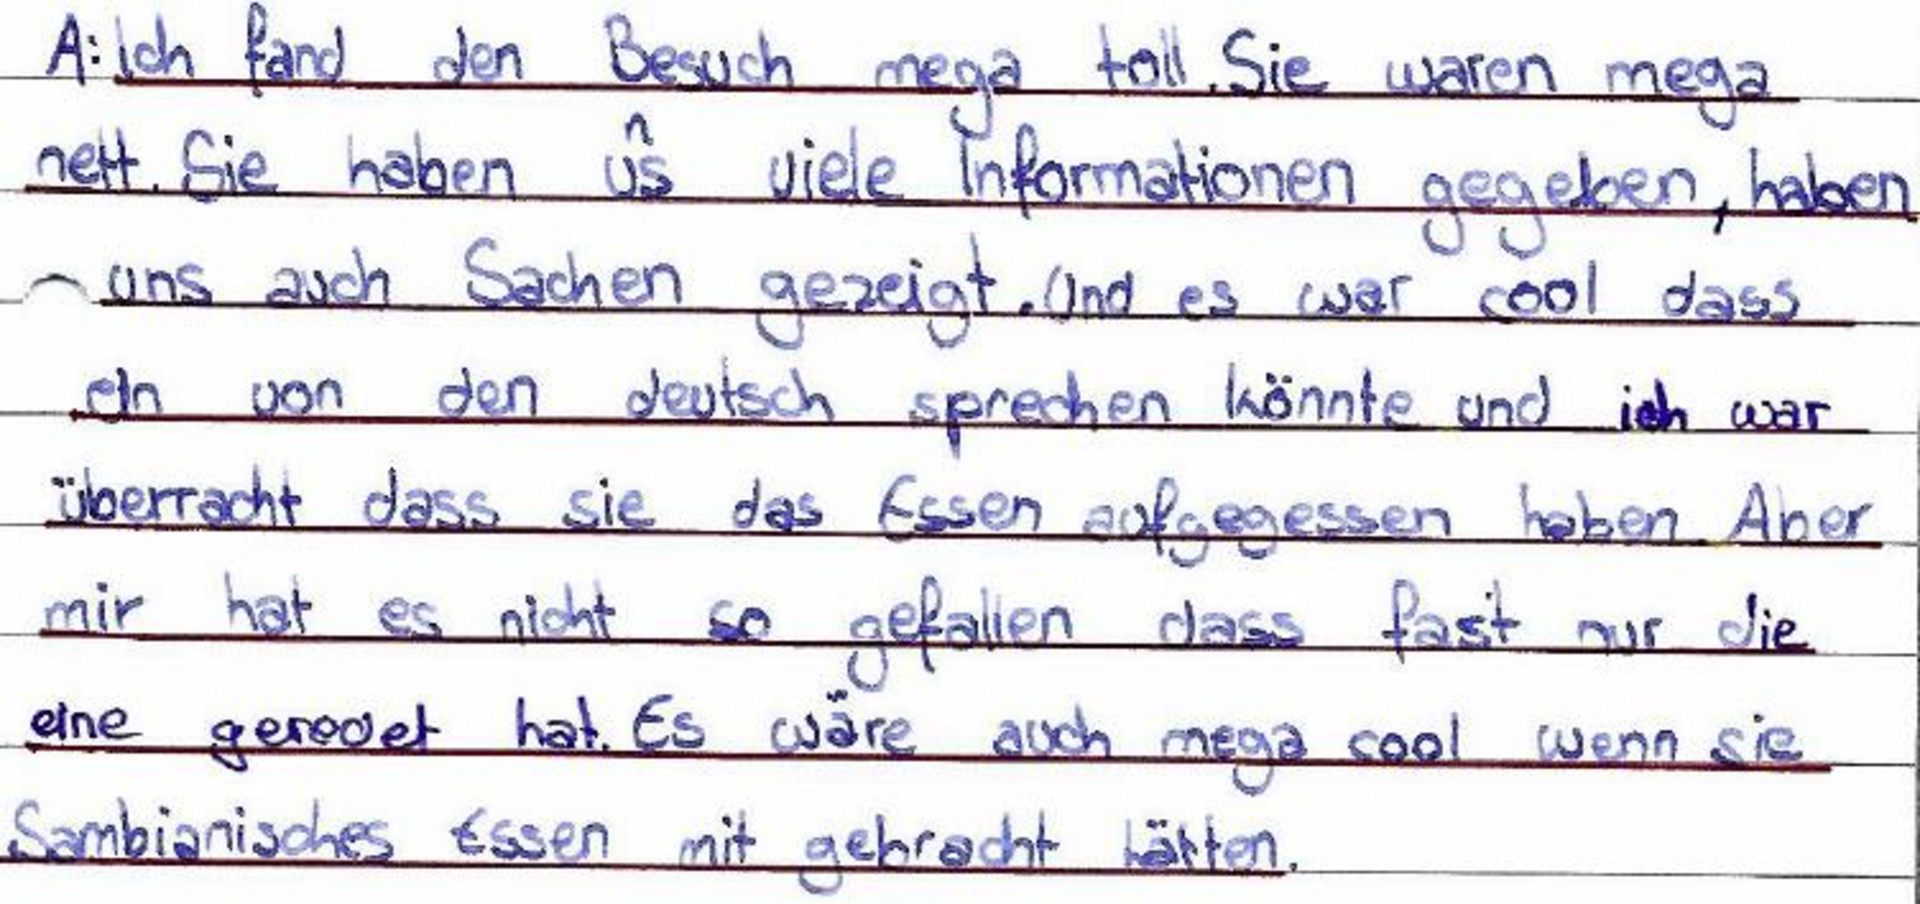 A: Ich fand den Besuch mega toll. Sie waren mega
nett. Sie haben uns viele Informationen gegeben, haben
uns auch Sachen gezeigt. Und es war cool dass
ein von den deutsch sprechen könnte und ich war
überracht dass sie das Essen aufgegessen haben Aber
mir hat es nicht so gefallen dass fast nur die
eine geredet hat. Es wäre auch mega cool wenn sie
Sambianisches Essen mit gebracht hätten.